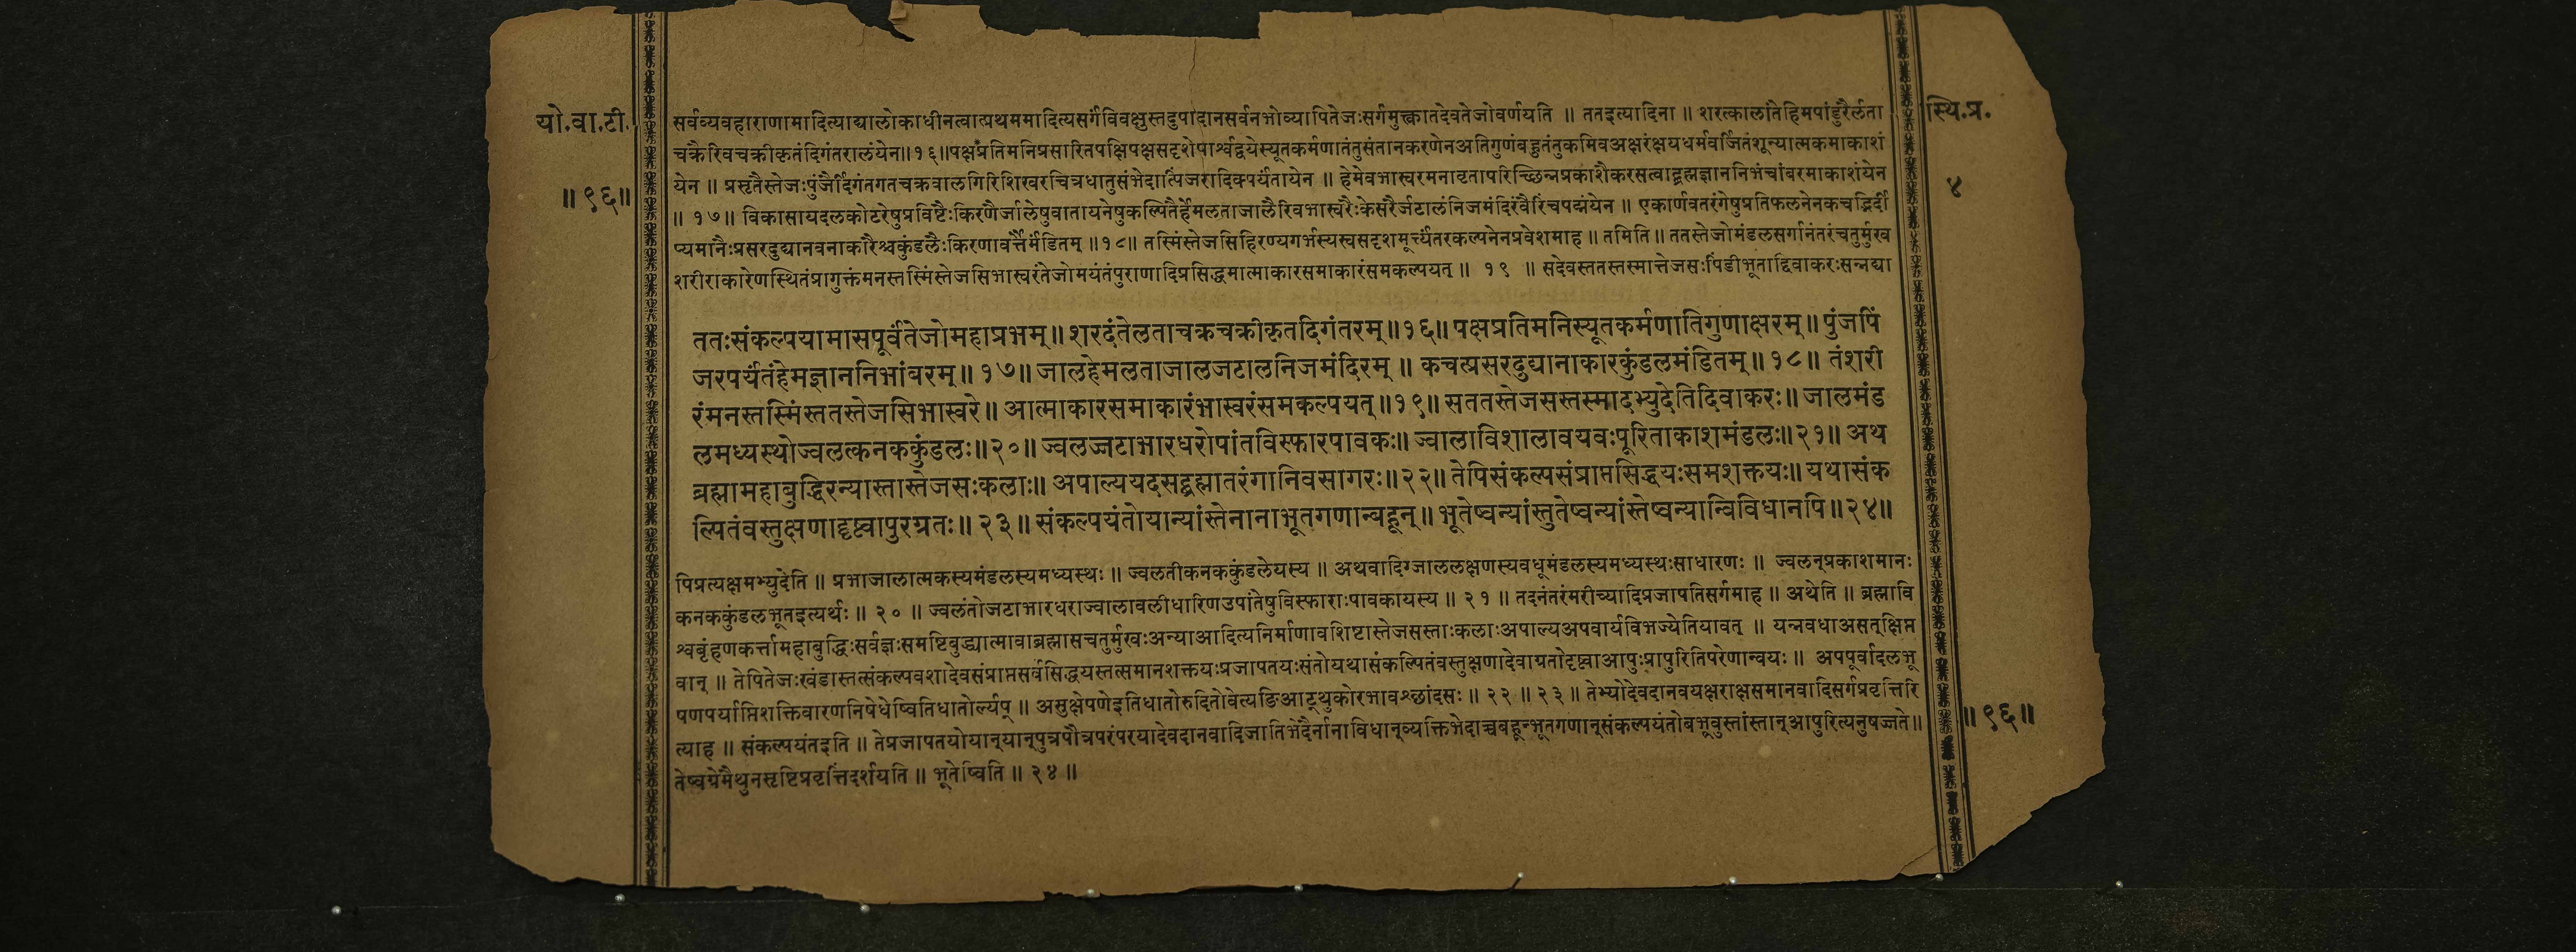 यो.वा.टी.
॥९६॥
स्थि.प्र.
४
सर्वव्यवहाराणामादित्याद्यालोकाधीनत्वात्प्रथममादित्यसर्गंविवक्षुस्तदुपादानसर्वनभोव्यापितेजःसर्गमुक्त्वातदेवतेजोवर्णयति ॥ ततइत्यादिना ॥ शरत्कालांतेहिमपांडुरैर्लता
चक्रैरिवचक्रीकृतंदिगंतरालंयेन॥१६॥पक्षप्रतिमनिप्रसारितपक्षिपक्षसदृशेपार्श्वद्वयेस्यूतकर्मणातंतुसंतानकरणेनअतिगुणंबहुतंतुकमिवअक्षरंक्षयधर्मवर्जितंशून्यात्मकमाकाशं
येन ॥ प्रसृतैस्तेजःपुंजैर्दिगंतगतचक्रवालगिरिशिखरचित्रधातुसंभेदात्पिंजरादिक्पर्यंतायेन ॥ हेमेवभास्वरमनावृतापरिच्छिन्नप्रकाशैकरसत्वाद्ब्रह्मज्ञाननिभंचांबरमाकाशंयेन
॥ १७॥ विकासायदलकोटरेषुप्रविष्टैःकिरणैर्जालेषुवातायनेषुकल्पितैर्हेमलताजालैरिवभास्वरैःकेसरैर्जटालंनिजमंदिरंवैरिंचपद्मंयेन ॥ एकार्णवतरंगेषुप्रतिफलनेनकचद्भिर्दी
प्यमानैःप्रसरदुद्यानवनाकारैश्चकुंडलैःकिरणावर्त्तैर्मंडितम् ॥१८॥ तस्मिंस्तेजसिहिरण्यगर्भस्यस्वसदृशमूर्त्त्यंतरकल्पनेनप्रवेशमाह ॥ तमिति ॥ ततस्तेजोमंडलसर्गानंतरंचतुर्मुख
शरीराकारेणस्थितंप्रागुक्तंमनस्तस्मिंस्तेजसिभास्वरंतेजोमयंतंपुराणादिप्रसिद्धमात्माकारसमाकारंसमकल्पयत् ॥ १९ ॥ सदेवस्ततस्तस्मात्तेजसःपिंडीभूताद्दिवाकरःसन्नद्या
ततःसंकल्पयामासपूर्वंतेजोमहाप्रभम्॥शरदंतेलताचक्रचक्रीकृतदिगंतरम्॥१६॥पक्षप्रतिमनिस्यूतकर्मणातिगुणाक्षरम्॥पुंजपिं
जरपर्यंतंहेमज्ञाननिभांबरम्॥ १७॥ जालहेमलताजालजटालनिजमंदिरम् ॥ कचत्प्रसरदुद्यानाकारकुंडलमंडितम्॥१८॥ तंशरी
रंमनस्तस्मिंस्ततस्तेजसिभास्वरे॥ आत्माकारसमाकारंभास्वरंसमकल्पयत्॥१९॥ सततस्तेजसस्तस्मादभ्युदेतिदिवाकरः॥ जालमंड
लमध्यस्थोज्वलत्कनककुंडलः॥२०॥ज्वलज्जटाभारधरोपांतविस्फारपावकः॥ ज्वालाविशालावयवःपूरिताकाशमंडलः॥२१॥ अथ
ब्रह्मामहाबुद्धिरन्यास्तास्तेजसःकलाः॥ अपाल्ययदसद्ब्रह्मातरंगानिवसागरः॥२२॥ तेपिसंकल्पसंप्राप्तसिद्धयःसमशक्तयः॥ यथासंक
ल्पितंवस्तुक्षणाद्दृष्ट्वापुरग्रतः॥ २३॥ संकल्पयंतोयान्यांस्तेनानाभूतगणान्बहून्॥ भूतेष्वन्यांस्तुतेष्वन्यांस्तेष्वन्यान्विविधानपि॥२४॥
पिप्रत्यक्षमभ्युदेति ॥ प्रभाजालात्मकस्यमंडलस्यमध्यस्थः ॥ ज्वलतीकनककुंडलेयस्य ॥ अथवादिग्जाललक्षणस्यवधूमंडलस्यमध्यस्थःसाधारणः ॥ ज्वलन्प्रकाशमानः
कनककुंडलभूतइत्यर्थः ॥ २० ॥ ज्वलंतोजटाभारधराज्वालावलीधारिणउपांतेषुविस्फाराःपावकायस्य ॥ २१ ॥ तदनंतरंमरीच्यादिप्रजापतिसर्गमाह ॥ अथेति ॥ ब्रह्मावि
श्वबृंहणकर्त्तामहाबुद्धिःसर्वज्ञःसमष्टिबुद्ध्यात्मावाब्रह्मासचतुर्मुखःअन्याआदित्यनिर्माणावशिष्टास्तेजसस्ताःकलाःअपाल्यअपवार्यविभज्येतियावत् ॥ यन्नवधाअसत्क्षिप्त
वान् ॥ तेपितेजःखंडास्तत्संकल्पवशादेवसंप्राप्तसर्वसिद्धयस्तत्समानशक्तयःप्रजापतयःसंतोयथासंकल्पितंवस्तुक्षणादेवाग्रतोदृष्ट्वाआपुःप्रापुरितिपरेणान्वयः ॥ अपपूर्वादलभू
षणपर्याप्तिशक्तिवारणनिषेधेष्वितिधातोर्ल्यप् ॥ असुक्षेपणेइतिधातोरुदितोवेत्यङिआट्थुकोरभावश्छांदसः ॥ २२ ॥ २३ ॥ तेभ्योदेवदानवयक्षराक्षसमानवादिसर्गप्रवृत्तिरि
त्याह ॥ संकल्पयंतइति ॥ तेप्रजापतयोयान्यान्पुत्रपौत्रपरंपरयादेवदानवादिजातिभेदैर्नानाविधान्व्यक्तिभेदाच्चबहून्भूतगणान्संकल्पयंतोबभूवुस्तांस्तान्आपुरित्यनुषज्जते॥
तेष्वग्रेमैथुनसृष्टिप्रवृत्तिंदर्शयति ॥ भूतेष्विति ॥ २४ ॥
॥९६॥